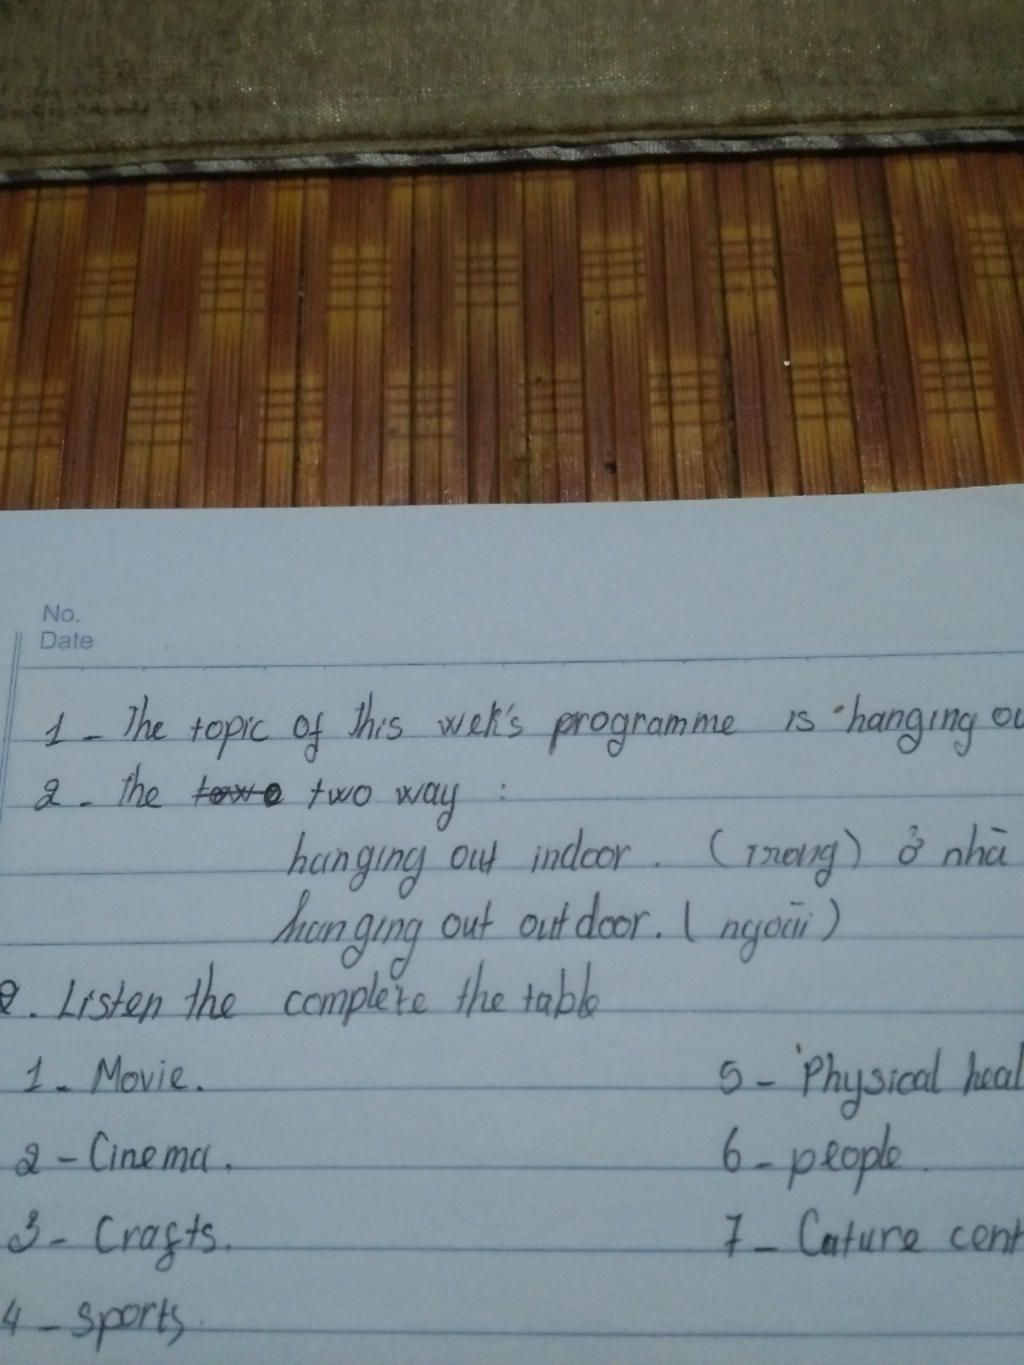 No.
Date
1 - The topic of this wek's programme is "hanging ou
2 - the two way :
hanging out indoor. (trong) ở nhà
hanging out outdoor. (ngoài)
2. Listen the complete the table
1 - Movie.
2 - Cinema.
3 - Crafts.
4 - sports.
5 - Physical heal
6 - people.
7 - Cuture cent